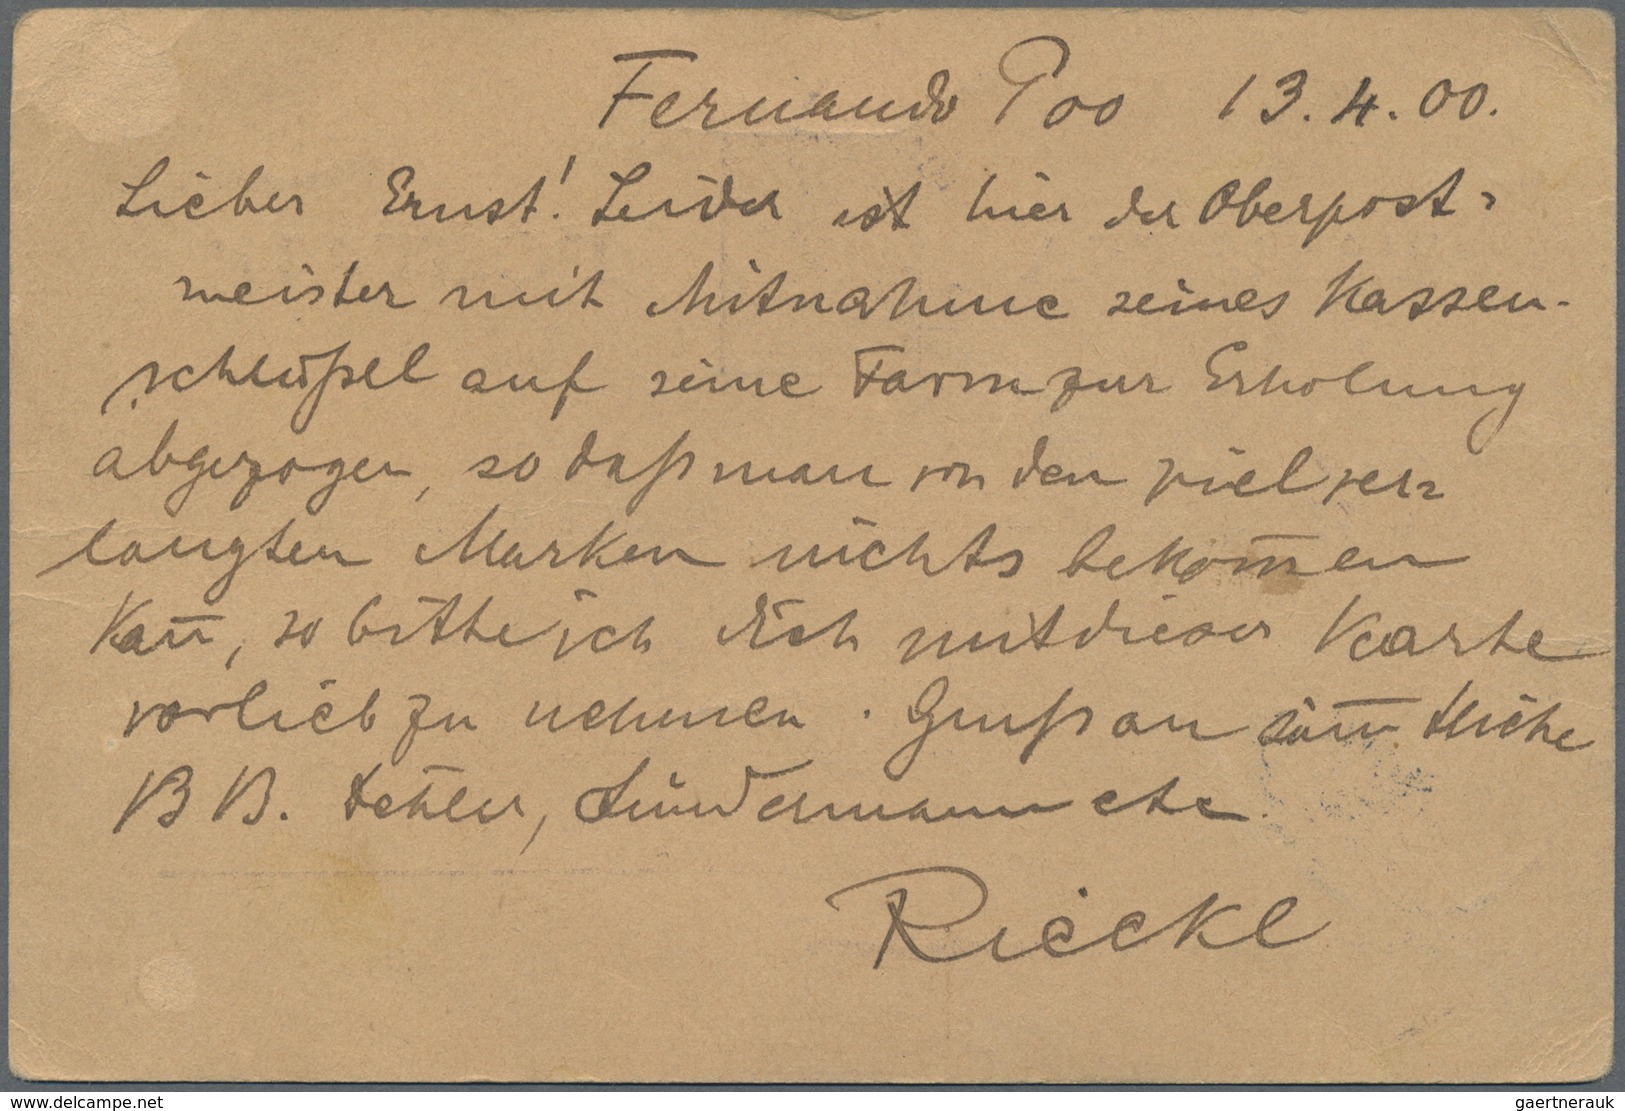 Fernando Poo 13.4.00.
Lieber Ernst! Leider ist hier der Oberpost=
meister mit Mitnahme seines Kassen-
schlüßel auf seine Farm zur Erholung
abgezogen, so daß man von den viel ver=
langten Marken nichts bekom̄en
kan̄, so bitte ich dich mit dieser Karte
vorlieb zu nehmen. Gruß an säm̄tliche
BB. etc
Rieckl
www.delcampe.net
gaertnerauk